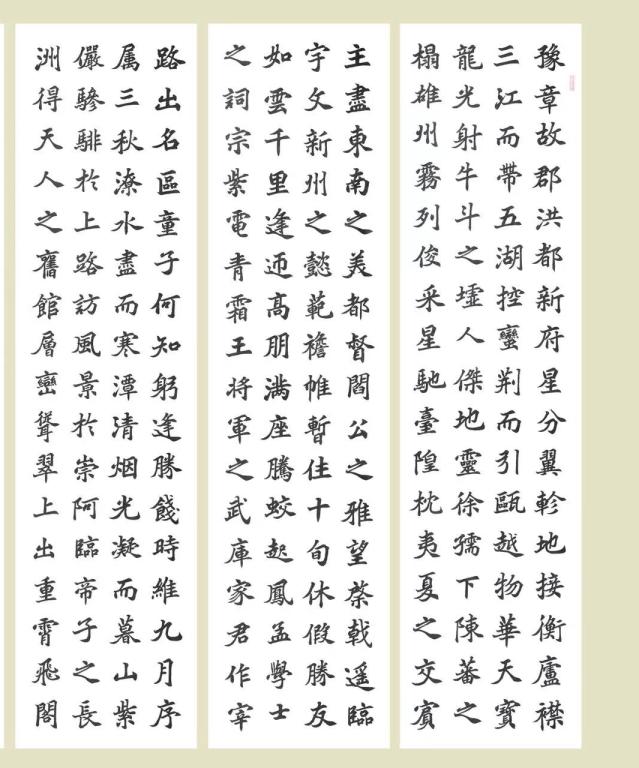 豫章故郡洪都新府星分翼軫地接衡廬襟
三江而帶五湖控蠻荆而引甌越物華天寶
龍光射牛斗之墟人傑地靈徐孺下陳蕃之
榻雄州霧列俊采星馳臺隍枕夷夏之交賓
主盡東南之美都督閻公之雅望棨戟遥臨
宇文新州之懿範襜帷暫住十旬休假勝友
如雲千里逢迊高朋满座騰蛟起鳳孟學士
之詞宗紫電青霜王将軍之武庫家君作宰
路出名區童子何知躬逢勝餞時維九月序
属三秋潦水盡而寒潭清烟光凝而暮山紫
儼驂騑於上路訪風景於崇阿臨帝子之長
洲得天人之舊館層巒聳翠上出重霄飛閣